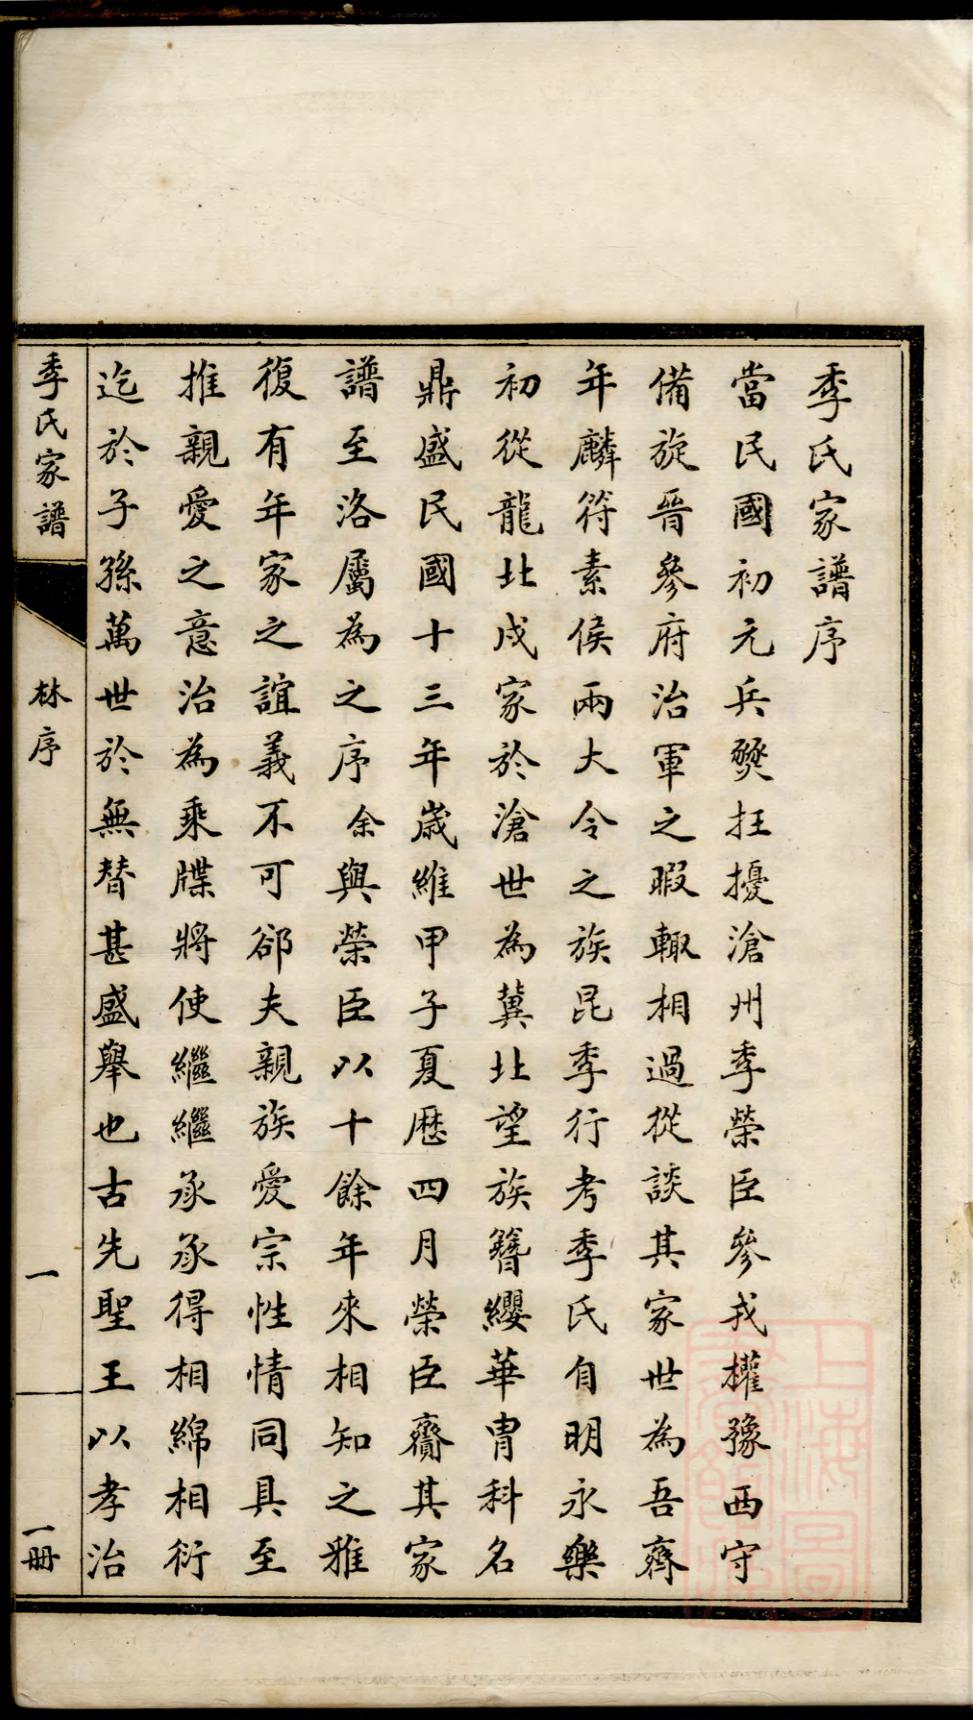 季氏家譜序
當民國初元兵燹抂擾滄州季榮臣參戎權豫西守
備旋晉參府治軍之暇輒相過從談其家世為吾齊
年麟符素侯兩大令之族昆季行考季氏自明永樂
初從龍北戍家於滄世為冀北望族簪纓華胄科名
鼎盛民國十三年歲維甲子夏歷四月榮臣齎其家
譜至洛屬為之序余與榮臣以十餘年來相知之雅
復有年家之誼義不可郤夫親族愛宗性情同具至
推親愛之意治為乘牒將使繼繼承承得相綿相衍
迄於子孫萬世於無替甚盛舉也古先聖王以孝治
季氏家譜
林序
一
一冊